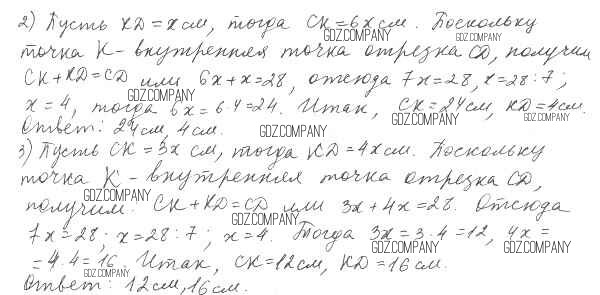 2) Пусть KD = x см, тогда CK = 6x см. Поскольку
GDZ.COMPANY GDZ.COMPANY
точка К - внутренняя точка отрезка CD, получим
CK + KD = CD или 6x + x = 28, отсюда 7x = 28, x = 28 : 7;
GDZ.COMPANY
x = 4, тогда 6x = 6·4 = 24. Итак, CK = 24 см, KD = 4 см.
GDZ.COMPANY GDZ.COMPANY
Ответ: 24 см, 4 см.
GDZ.COMPANY
3) Пусть CK = 3x см, тогда KD = 4x см. Поскольку
точка К - внутренняя точка отрезка CD,
GDZ.COMPANY
получим. CK + KD = CD или 3x + 4x = 28. Отсюда
GDZ.COMPANY
7x = 28; x = 28 : 7; x = 4. Тогда 3x = 3·4 = 12, 4x =
GDZ.COMPANY GDZ.COMPANY
= 4·4 = 16. Итак, CK = 12 см, KD = 16 см.
GDZ.COMPANY
Ответ: 12 см, 16 см.